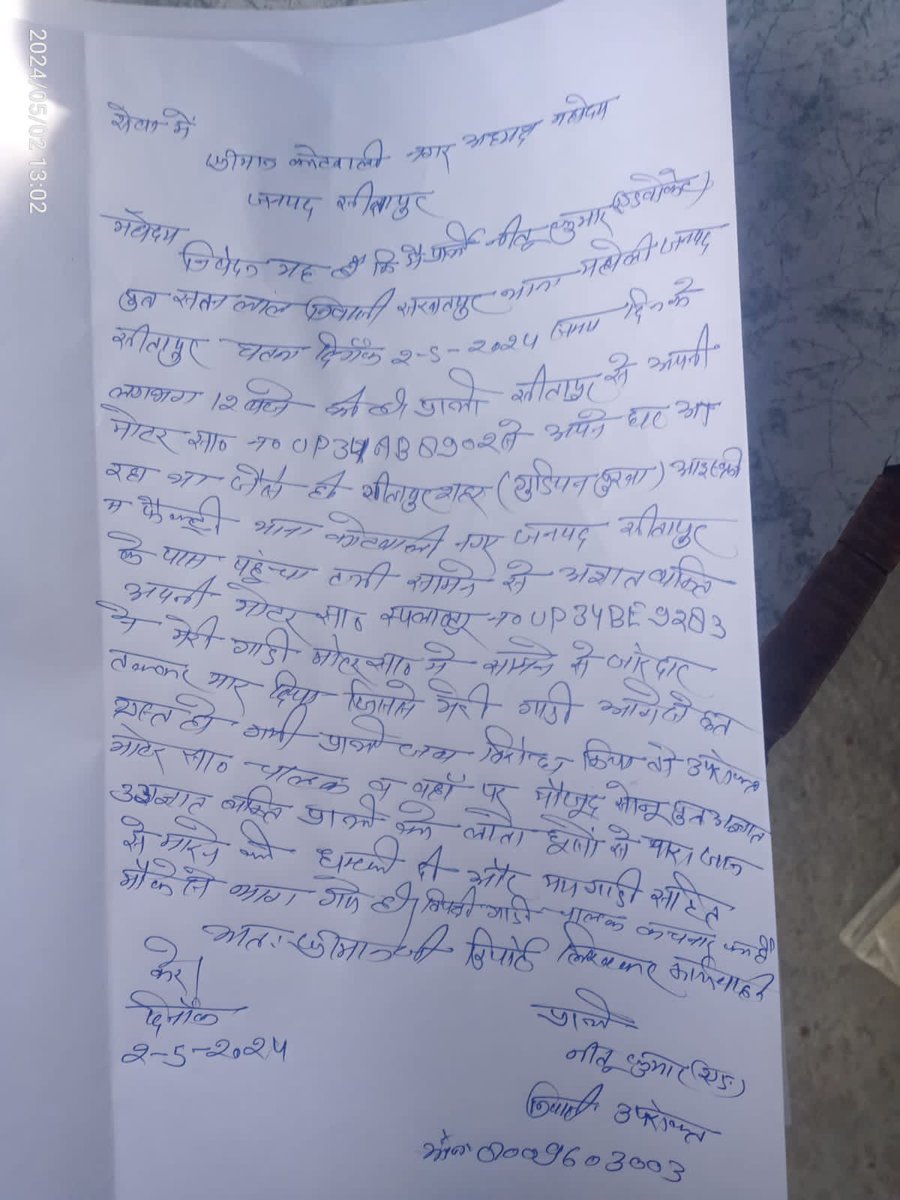 2024/05/02 13:02
सेवा में
श्रीमान कोतवाली नगर अध्यक्ष महोदय
जनपद सीतापुर
महोदय
निवेदन यह है कि मैं प्रार्थी नीतू कुमार (एडवोकेट)
पुत्र लाल निवासी थाना महोली जनपद
सीतापुर घटना दिनाँक 2-5-2024 समय दिन के
लगभग 12 बजे की है प्रार्थी सीतापुर से अपनी
मोटर सा० न० UP34AB8902 से अपने घर आ
रहा था जैसे ही सीतापुर शहर
फैक्ट्री थाना कोतवाली नगर जनपद सीतापुर
के पास पहुंचा तभी सामने से अज्ञात व्यक्ति
अपनी मोटर सा० न० UP34BE9283
से मेरी गाडी मोटर सा० में सामने से जोरदार
टक्कर मार दिया जिससे मेरी गाडी आगे से क्षत
ग्रस्त हो गयी प्रार्थी जब विरोध किया तो उपरोक्त
मोटर सा० चालक व वहाँ पर मौजूद सोनू पुत्र अज्ञात
अज्ञात व्यक्ति प्रार्थी को लातो घूसों से मारा जान
से मारने की धमकी दी और मय गाडी सहित
मौके से भाग गये है। विपक्षी गाडी चालक
अतः श्रीमान जी रिपोर्ट लिखकर कार्यवाही
करे।
दिनाँक
2-5-2024
प्रार्थी
नीतू कुमार (एड०)
निवासी उपरोक्त
मो०न० 8009603003